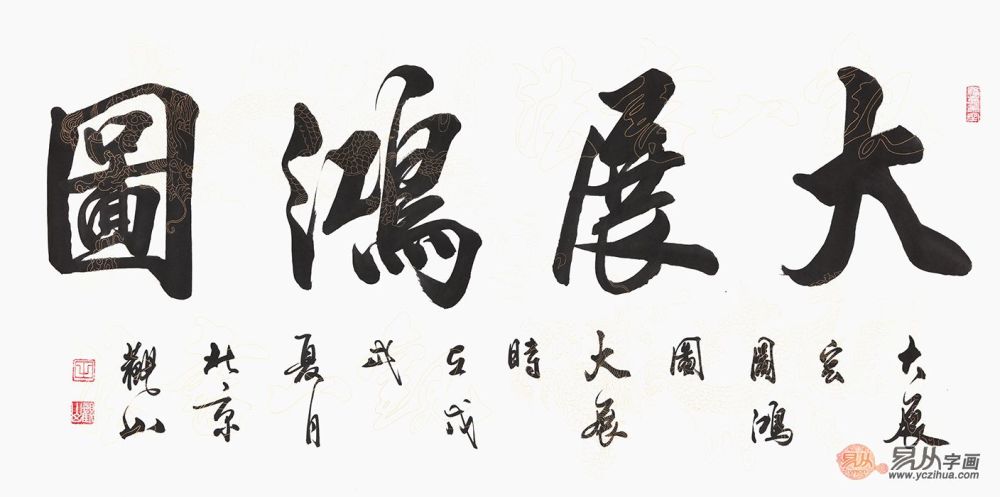 大展鴻圖
大展
宏
圖鴻
圖
大展
時
在戊
戌
夏月
北京
觀山
易从
易从字画
www.yczihua.com